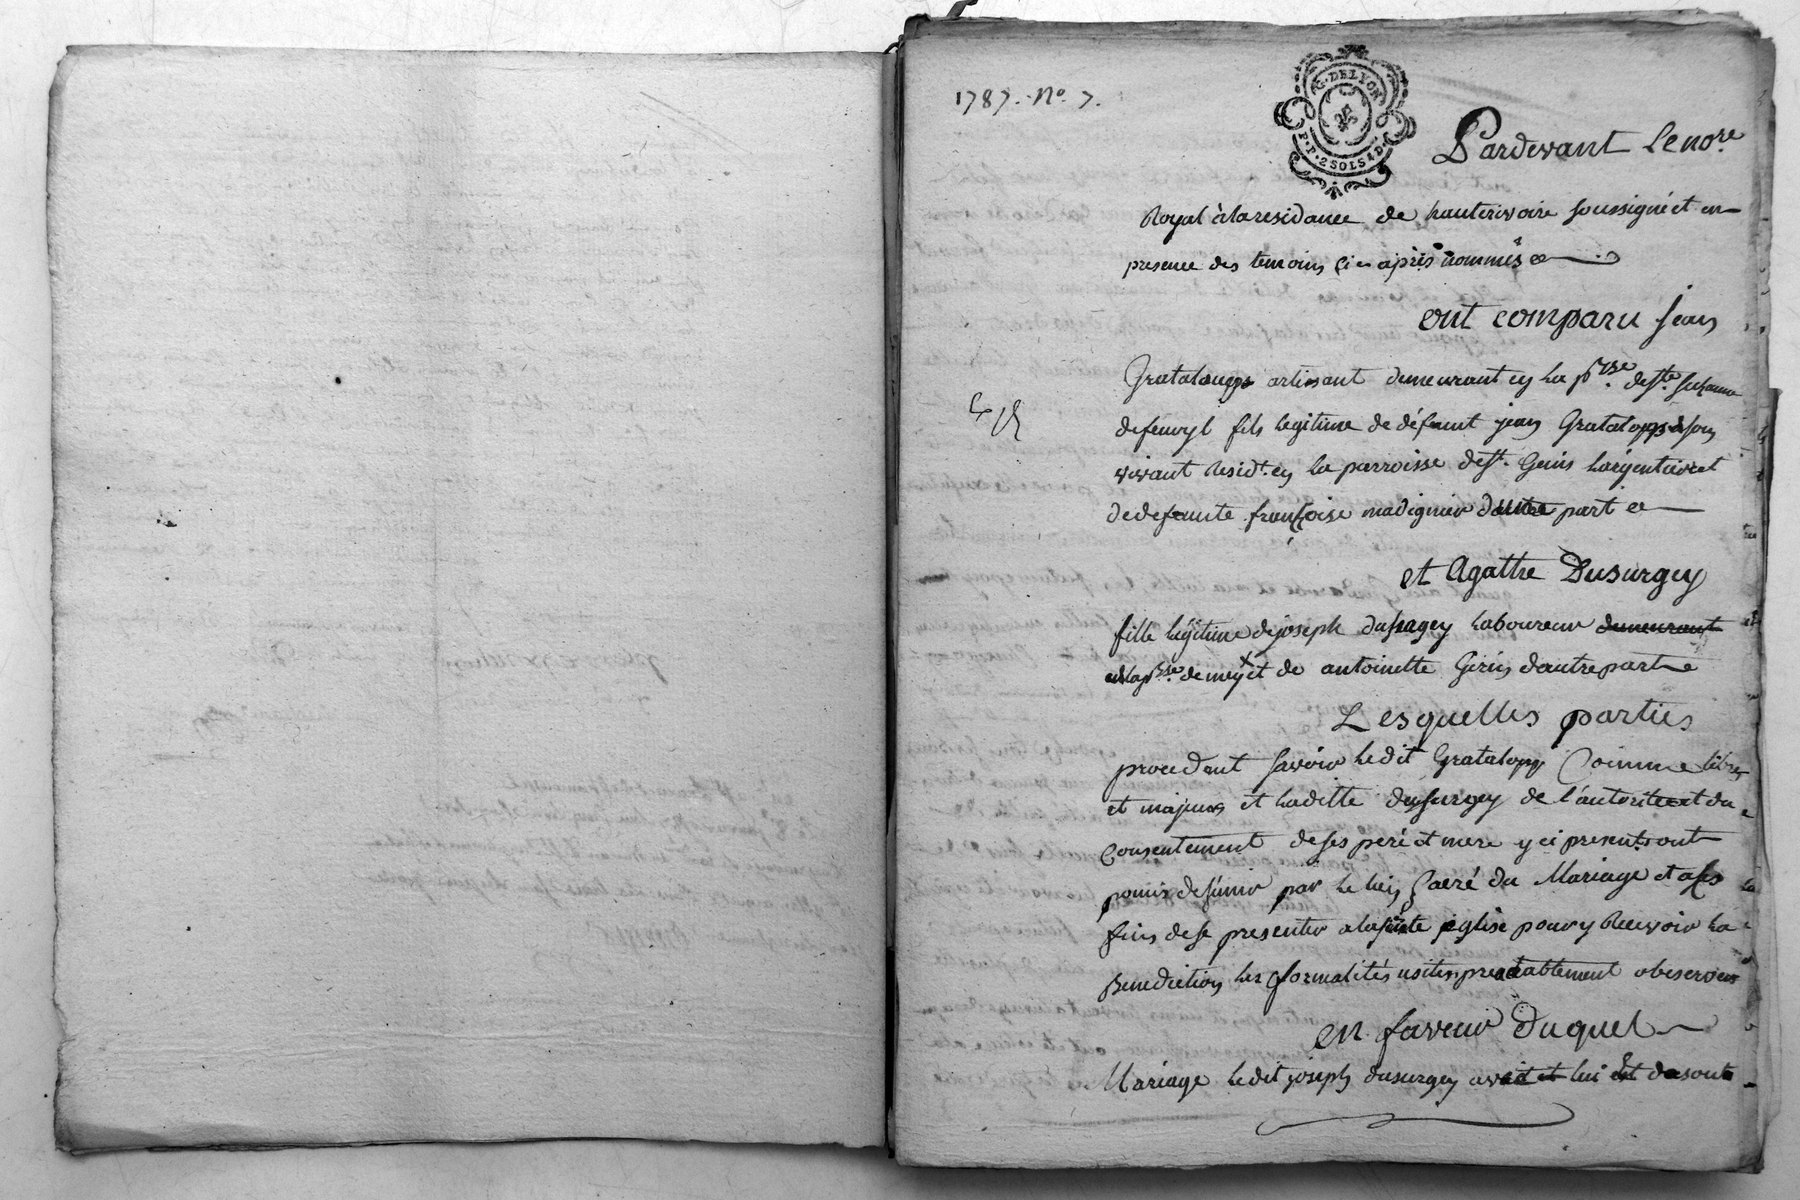 1787. No. 7.
G. DE LYON
P.P. 2 SOLS 4 D.
Pardevant Le nore
Royal à la residance de hauterivoire soussigné et en
presence des temoins ci en après nommés &
ont comparu jean
Grataloupp artisant demeurant en la psse de Ste
fils legitime de défeunt jean Grataloupp de son
vivant residt en la parroisse de St. Genis l'argentiere et
de defeunte françoise madignier d'autre part &
et Agathe Dusurgey
fille légitime de joseph dusurgey laboureur demeurant
en la psse de meys et de antoinette Girin d'autre part &
Lesquelles parties
procedent savoir ledit Grataloup Comme libre
et majeur et laditte dusurgey de l'autorité et du
Consentement de ses peré et mere y ci presents ont
promis de s'unir par le lien sacré du Mariage et a ses
fins de se presenter a la sainte église pour y Recevoir la
Benediction les formalités usitées prealablement observées
en faveur Duquel
Mariage ledit joseph dusurgey